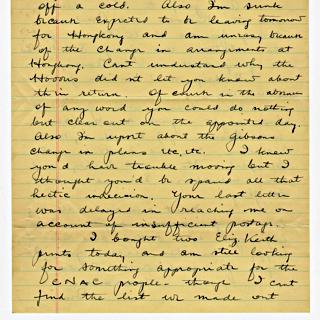 off a cold. Also I'm sunk
because expected to be leaving tomorrow
for Hongkong and am uneasy because
of the change in arrangements at
Hongkong. Can't understand why the
Hoovers didn't let you know about
their return. Of course in the absence
of any word you could do nothing
but clear out on the appointed day.
Also I'm upset about the Gibsons
change in plans etc, etc. I knew
you'd have trouble moving but I
thought you'd be spared all that
hectic indecision. Your last letter
was delayed in reaching me on
account of insufficient postage.
I bought two Eliz. Keith
prints today and am still looking
for something appropriate for the
CNAC people - though I can't
find the list we made out